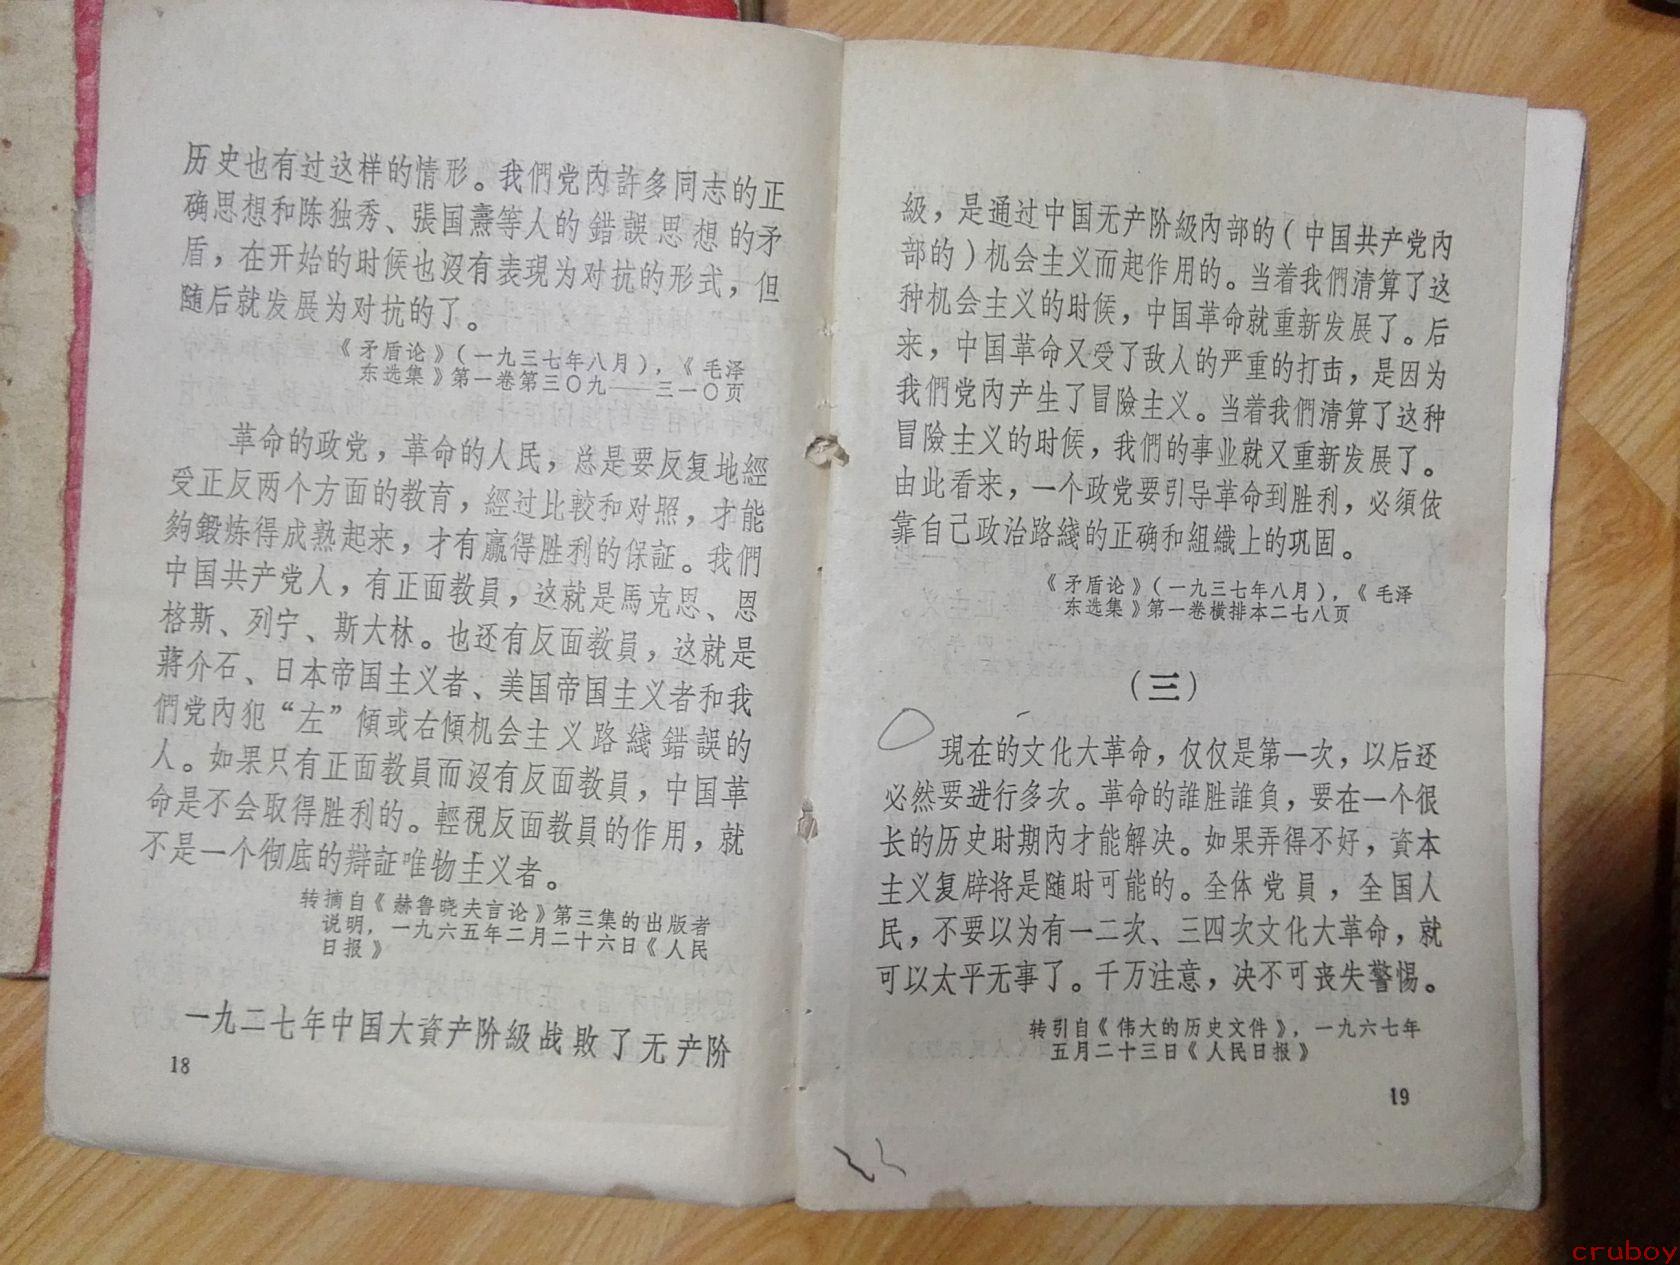 历史也有过这样的情形。我們党内許多同志的正
确思想和陈独秀、張国燾等人的錯誤思想的矛
盾，在开始的时候也沒有表現为对抗的形式，但
随后就发展为对抗的了。
《矛盾论》（一九三七年八月），《毛泽
东选集》第一卷第三〇九——三一〇页
革命的政党，革命的人民，总是要反复地經
受正反两个方面的教育，經过比較和对照，才能
夠鍛炼得成熟起来，才有贏得胜利的保証。我們
中国共产党人，有正面教員，这就是馬克思、恩
格斯、列宁、斯大林。也还有反面教員，这就是
蔣介石、日本帝国主义者、美国帝国主义者和我
們党內犯“左”傾或右傾机会主义路綫錯誤的
人。如果只有正面教員而沒有反面教員，中国革
命是不会取得胜利的。輕視反面教員的作用，就
不是一个彻底的辯証唯物主义者。
转摘自《赫鲁晓夫言论》第三集的出版者
说明，一九六五年二月二十六日《人民
日报》
一九二七年中国大資产阶級战敗了无产阶
18
級，是通过中国无产阶級內部的（中国共产党內
部的）机会主义而起作用的。当着我們清算了这
种机会主义的时候，中国革命就重新发展了。后
来，中国革命又受了敌人的严重的打击，是因为
我們党內产生了冒險主义。当着我們清算了这种
冒險主义的时候，我們的事业就又重新发展了。
由此看来，一个政党要引导革命到胜利，必須依
靠自己政治路綫的正确和組織上的巩固。
《矛盾论》（一九三七年八月），《毛泽
东选集》第一卷横排本二七八页
（三）
現在的文化大革命，仅仅是第一次，以后还
必然要进行多次。革命的誰胜誰負，要在一个很
长的历史时期內才能解决。如果弄得不好，資本
主义复辟将是随时可能的。全体党員，全国人
民，不要以为有一二次、三四次文化大革命，就
可以太平无事了。千万注意，决不可丧失警惕。
转引自《伟大的历史文件》，一九六七年
五月二十三日《人民日报》
19
cruboy